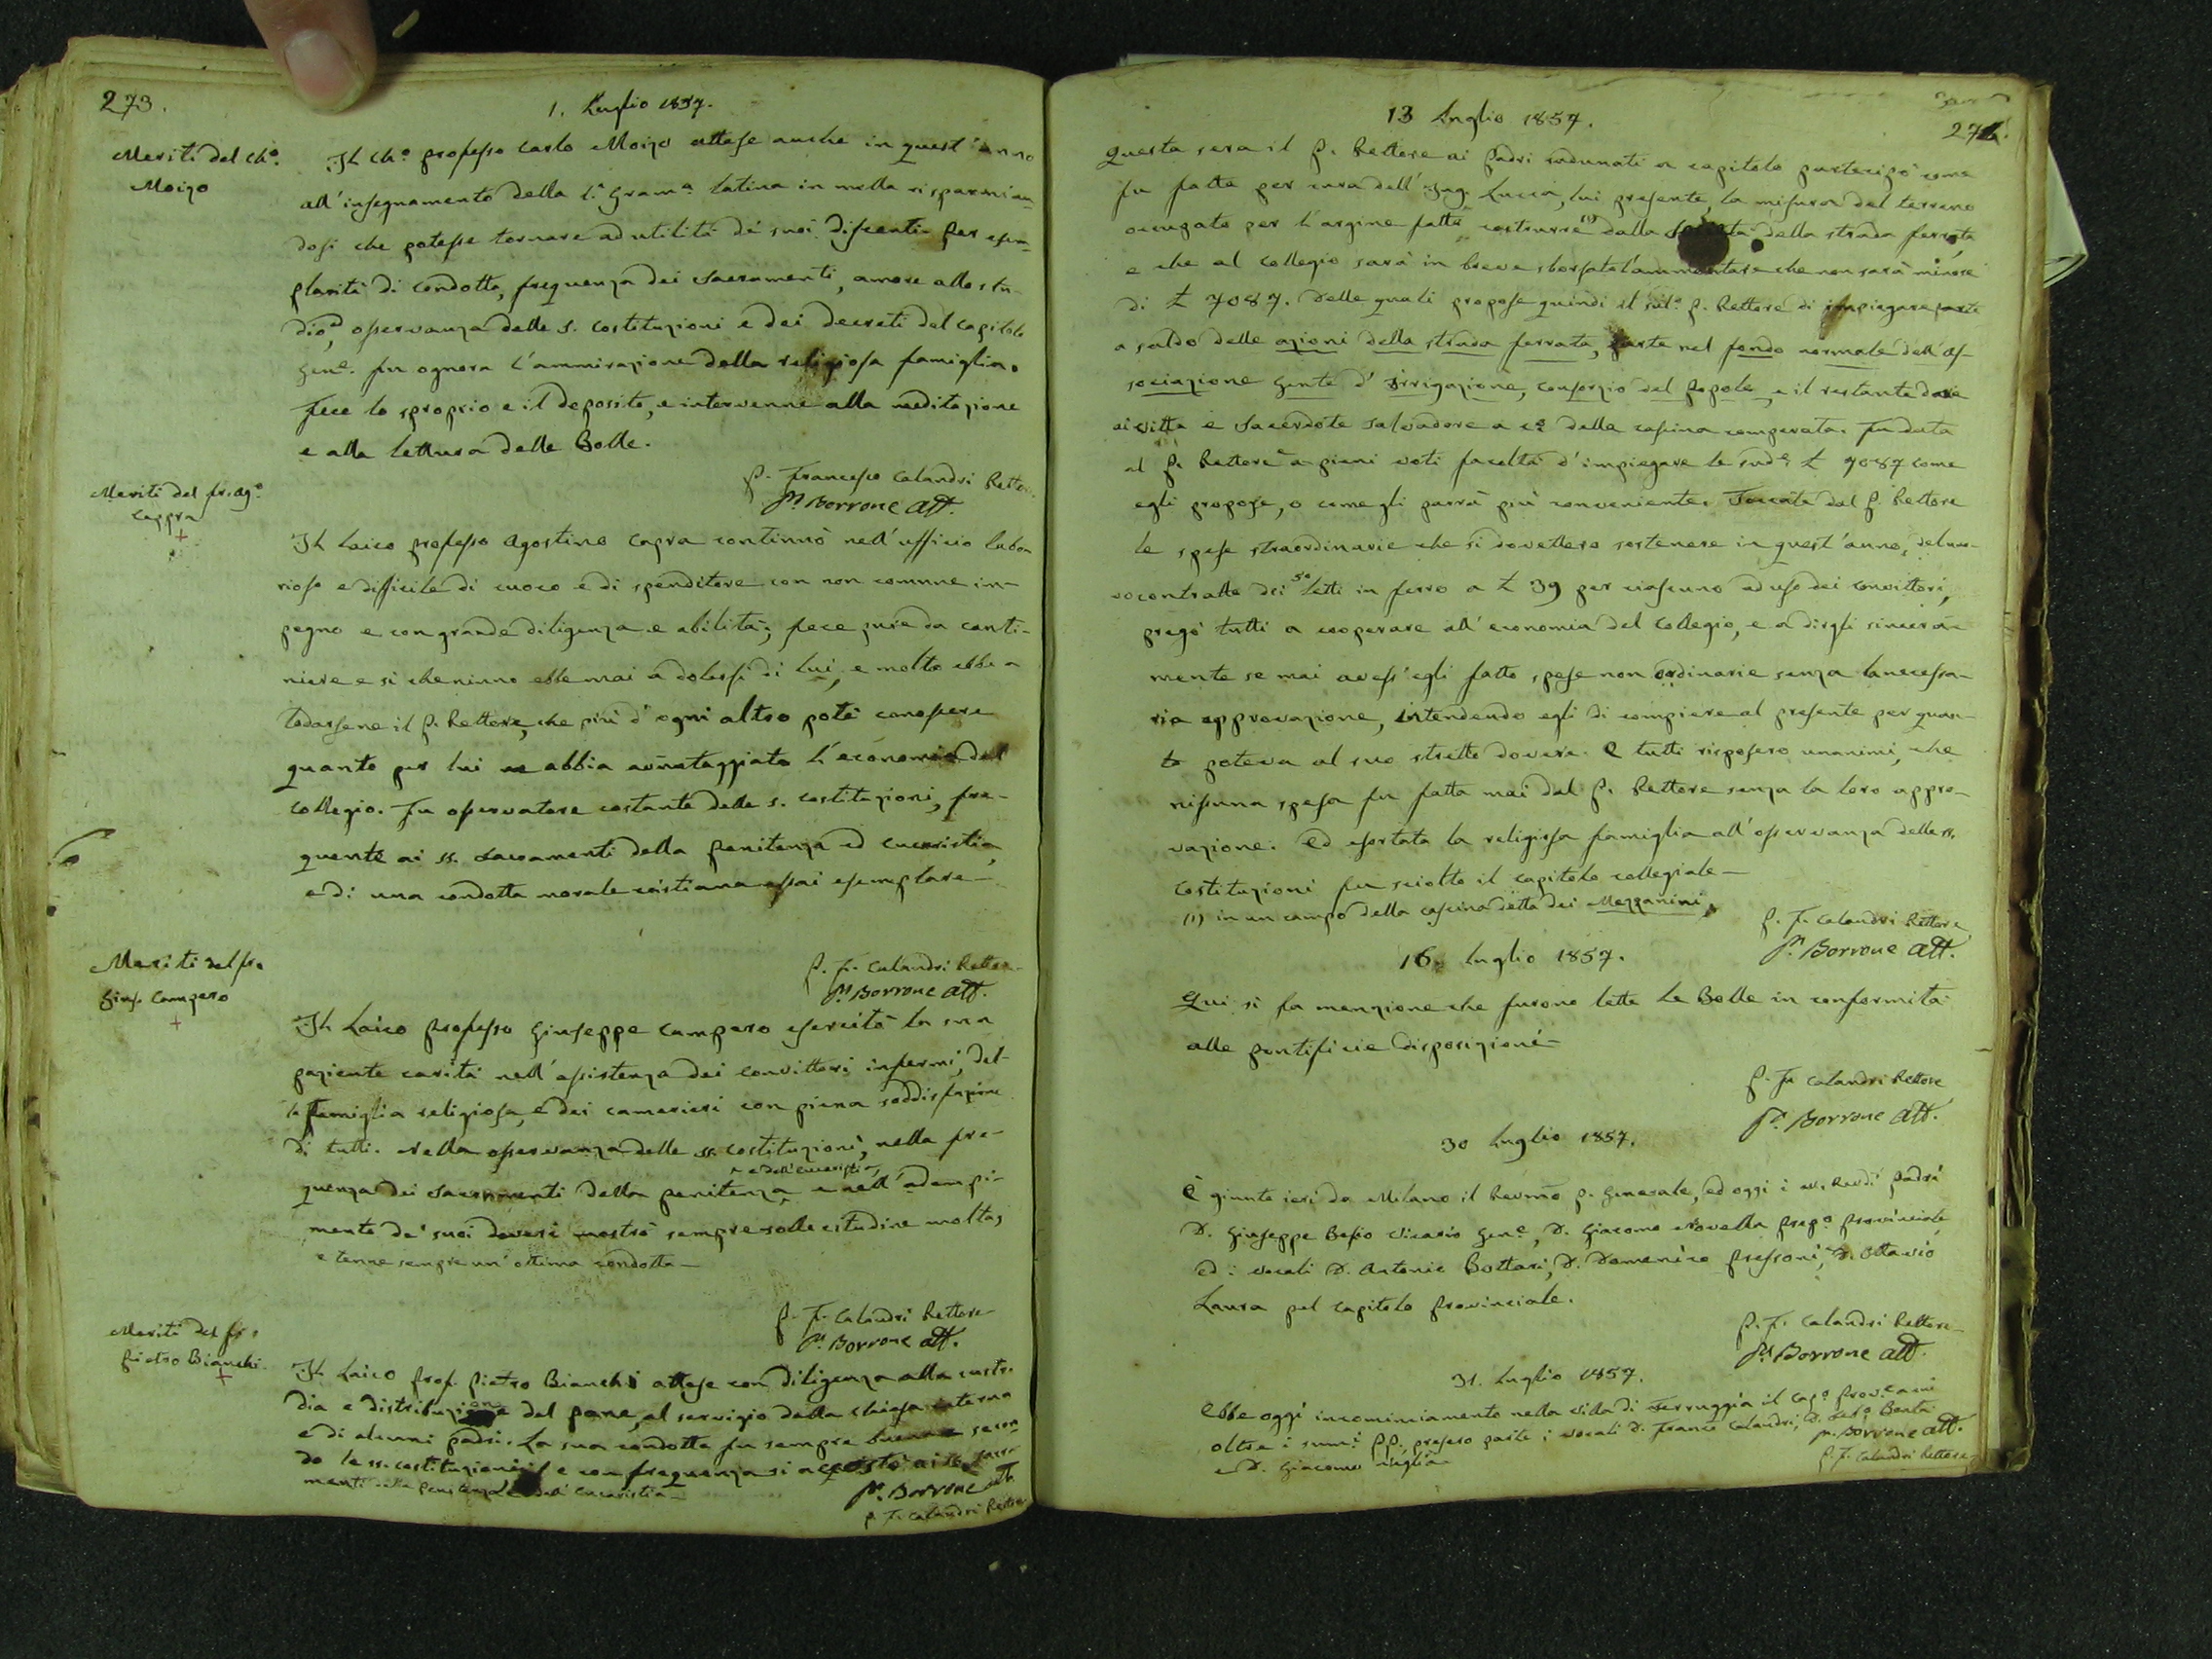 273.
1. Luglio 1857.
Meriti del Ch.o
Moizo
Il Ch.o professo Carlo Moizo attese anche in quest'anno
all'insegnamento della 1.a Gram.a latina in nulla risparmian-
dosi che potesse tornare ad utilità de' suoi discenti. Per esem-
plarità di condotta, frequenza dei Sacramenti, amore allo stu-
dio, osservanza delle S. Costituzioni e dei decreti del Capitolo
Gen.e fu ognora l'ammirazione della religiosa famiglia.
Fece lo sproprio e il deposito, e intervenne alla meditazione
e alla lettura delle Bolle.
P. Francesco Calandri Rettore
P. Borrone Att.
Meriti del fr. Ag.o
Cappra
Il Laico professo Agostino Capra continuò nell'ufficio labo-
rioso e difficile di cuoco e di spenditore con non comune im-
pegno e con grande diligenza e abilità; fece pure da canti-
niere e sì che niuno ebbe mai a dolersi di lui, e molto ebbe a
lodarsene il P. Rettore, che più d'ogni altro potè conoscere
quanto per lui abbia avvantaggiato l'economia del
Collegio. Fu osservatore costante delle S. Costituzioni, fre-
quente ai SS. Sacramenti della penitenza ed Eucaristia,
e di una condotta morale cristiana assai esemplare.
P. F. Calandri Rettore
P. Borrone Att.
Meriti del fr.
Gius. Campero
Il Laico professo Giuseppe Campero esercitò la sua
paziente carità nell'assistenza dei convittori infermi, del-
la famiglia religiosa, e dei camerieri con piena soddisfazione
di tutti. Nella osservanza delle SS. Costituzioni, nella fre-
quenza dei Sacramenti della penitenza e dell'Eucaristia, e nell'adempi-
mento de' suoi doveri mostrò sempre sollecitudine molta,
e tenne sempre un'ottima condotta—
P. F. Calandri Rettore
P. Borrone Att.
Meriti del fr.
Pietro Bianchi.
Il Laico prof. Pietro Bianchi attese con diligenza alla custo-
dia e distribuzione del pane, al servizio della Chiesa interna
e di alcuni padri. La sua condotta fu sempre buona secon-
do le SS. Costituzioni e con frequenza si accostò ai SS. Sacra-
menti della penitenza e dell'Eucaristia—
P. Borrone Att.
P. F. Calandri Rettore
274.
13 Luglio 1857.
Questa sera il P. Rettore ai Padri radunati a capitolo partecipò come
fu fatta per cura dell'Ing. Lucca, lui presente, la misura del terreno
occupato per l'argine fatto costrurre (1) dalla della strada ferrata,
e che al Collegio sarà in breve sborsato l'ammontare che non sarà minore
di £ 7087. Delle quali propose quindi il sul.o P. Rettore di impiegare parte
a saldo delle azioni della strada ferrata, parte nel fondo normale dell'as-
sociazione Gente d'irrigazione, consorzio del popolo, e il restante dare
ai Vitta e Sacerdote Salvadore a c.o della cascina comperata. Fu data
al P. Rettore a pieni voti facoltà d'impiegare le sud.e £ 7087 come
egli propose, o come gli parrà più conveniente. Toccate dal P. Rettore
le spese straordinarie che si dovettero sostenere in quest'anno, del nuo-
vo contratto dei 50 letti in ferro a £ 39 per ciascuno ad uso dei convittori,
pregò tutti a cooperare all'economia del Collegio, e a dirgli sincera-
mente se mai avess'egli fatto spese non ordinarie senza la necessa-
ria approvazione, intendendo egli di compiere al presente per quan-
to poteva al suo stretto dovere. E tutti risposero unanimi, che
nissuna spesa fu fatta mai dal P. Rettore senza la loro appro-
vazione. Ed esortata la religiosa famiglia all'osservanza delle SS.
Costituzioni fu sciolto il capitolo collegiale—
(1) in un campo della cascina detta dei Mezzanini.
P. F. Calandri Rettore
P. Borrone Att.
16. Luglio 1857.
Qui si fa menzione che furono lette le Bolle in conformità
alle pontificie disposizioni—
P. Fr. Calandri Rettore
P. Borrone Att.
30 Luglio 1857.
È giunto ieri da Milano il Rev.mo P. Generale, ed oggi i M. Rev.di Padri
D. Giuseppe Besio Vicario Gen.e, D. Giacomo Novella Prep.o Provinciale
ed i vocali D. Antonio Bottari, D. Domenico Pressoni, D. Ottavio
Laura pel capitolo Provinciale.
P. F. Calandri Rettore
P. Borrone Att.
31. Luglio 1857.
Ebbe oggi incominciamento nella Villa di Terruggia il Cap.o Prov.e a cui
oltre i sunn.i PP. presero parte i vocali D. Franc.o Calandri, D. Bonta
e D. Giacomo
P. Borrone Att.
P. F. Calandri Rettore